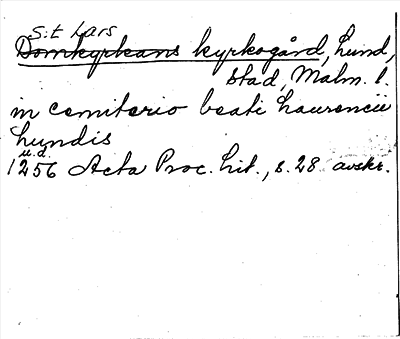 S:t Lars
Domkyrkans kyrkogård, Lund,
stad, Malm. l.
in cemiterio beati Laurencii
Lundis
u.d.
1256 Acta Proc. Lit., s. 28 avskr.